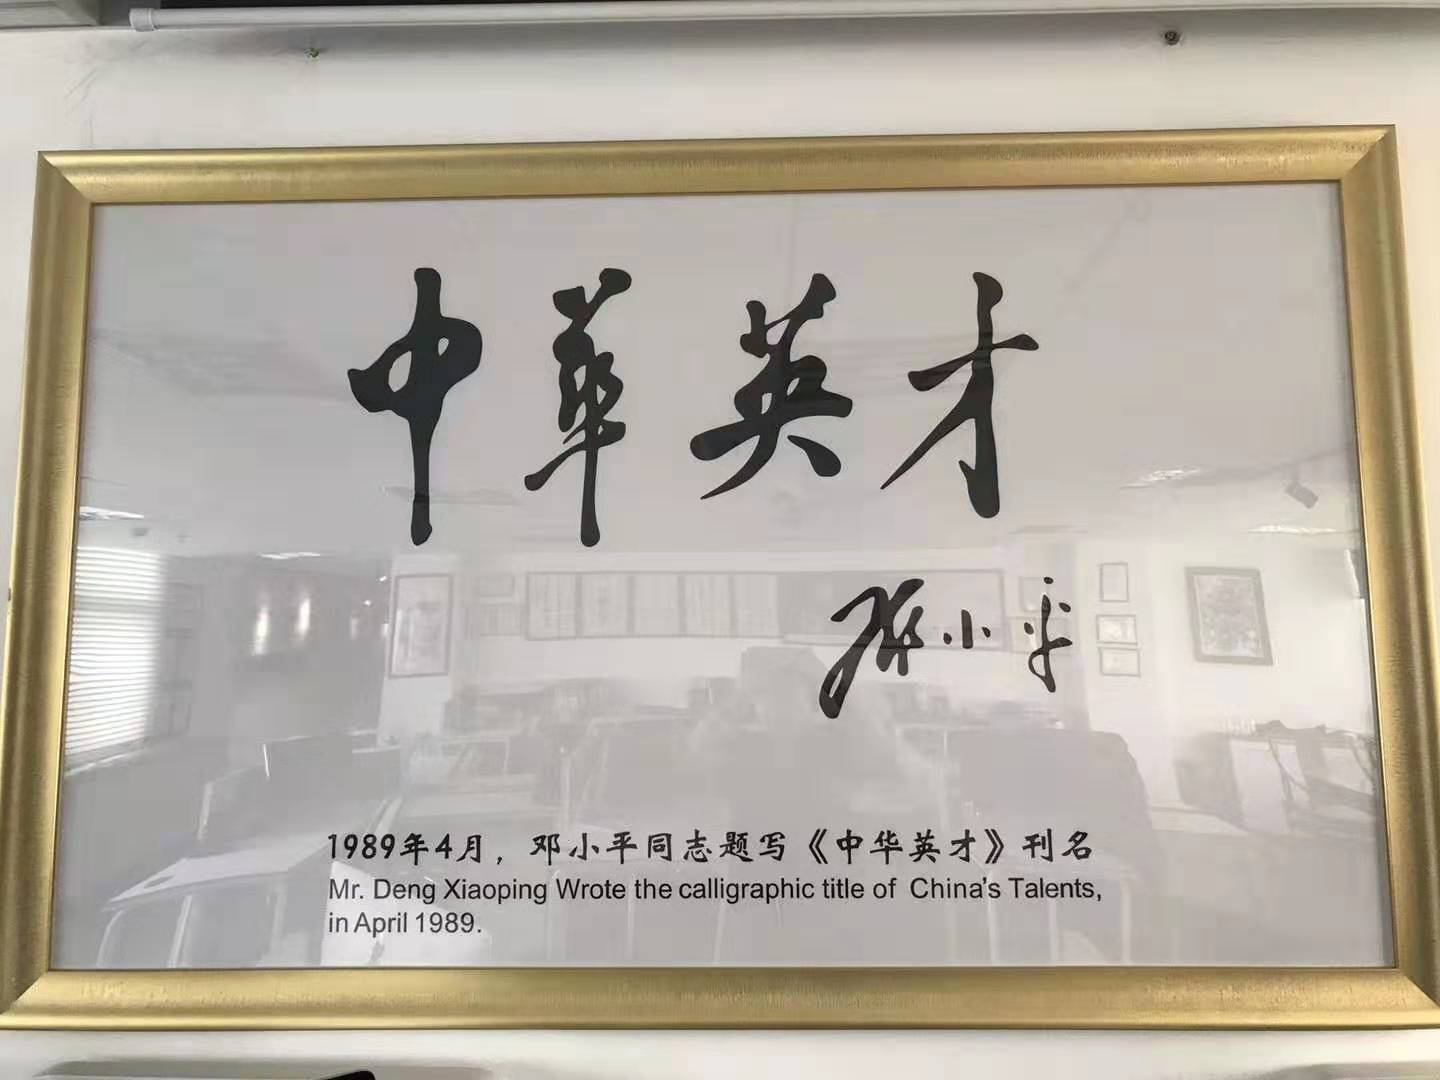 中華英才
邓小平
1989年4月，邓小平同志题写《中华英才》刊名
Mr. Deng Xiaoping Wrote the calligraphic title of China's Talents,
in April 1989.